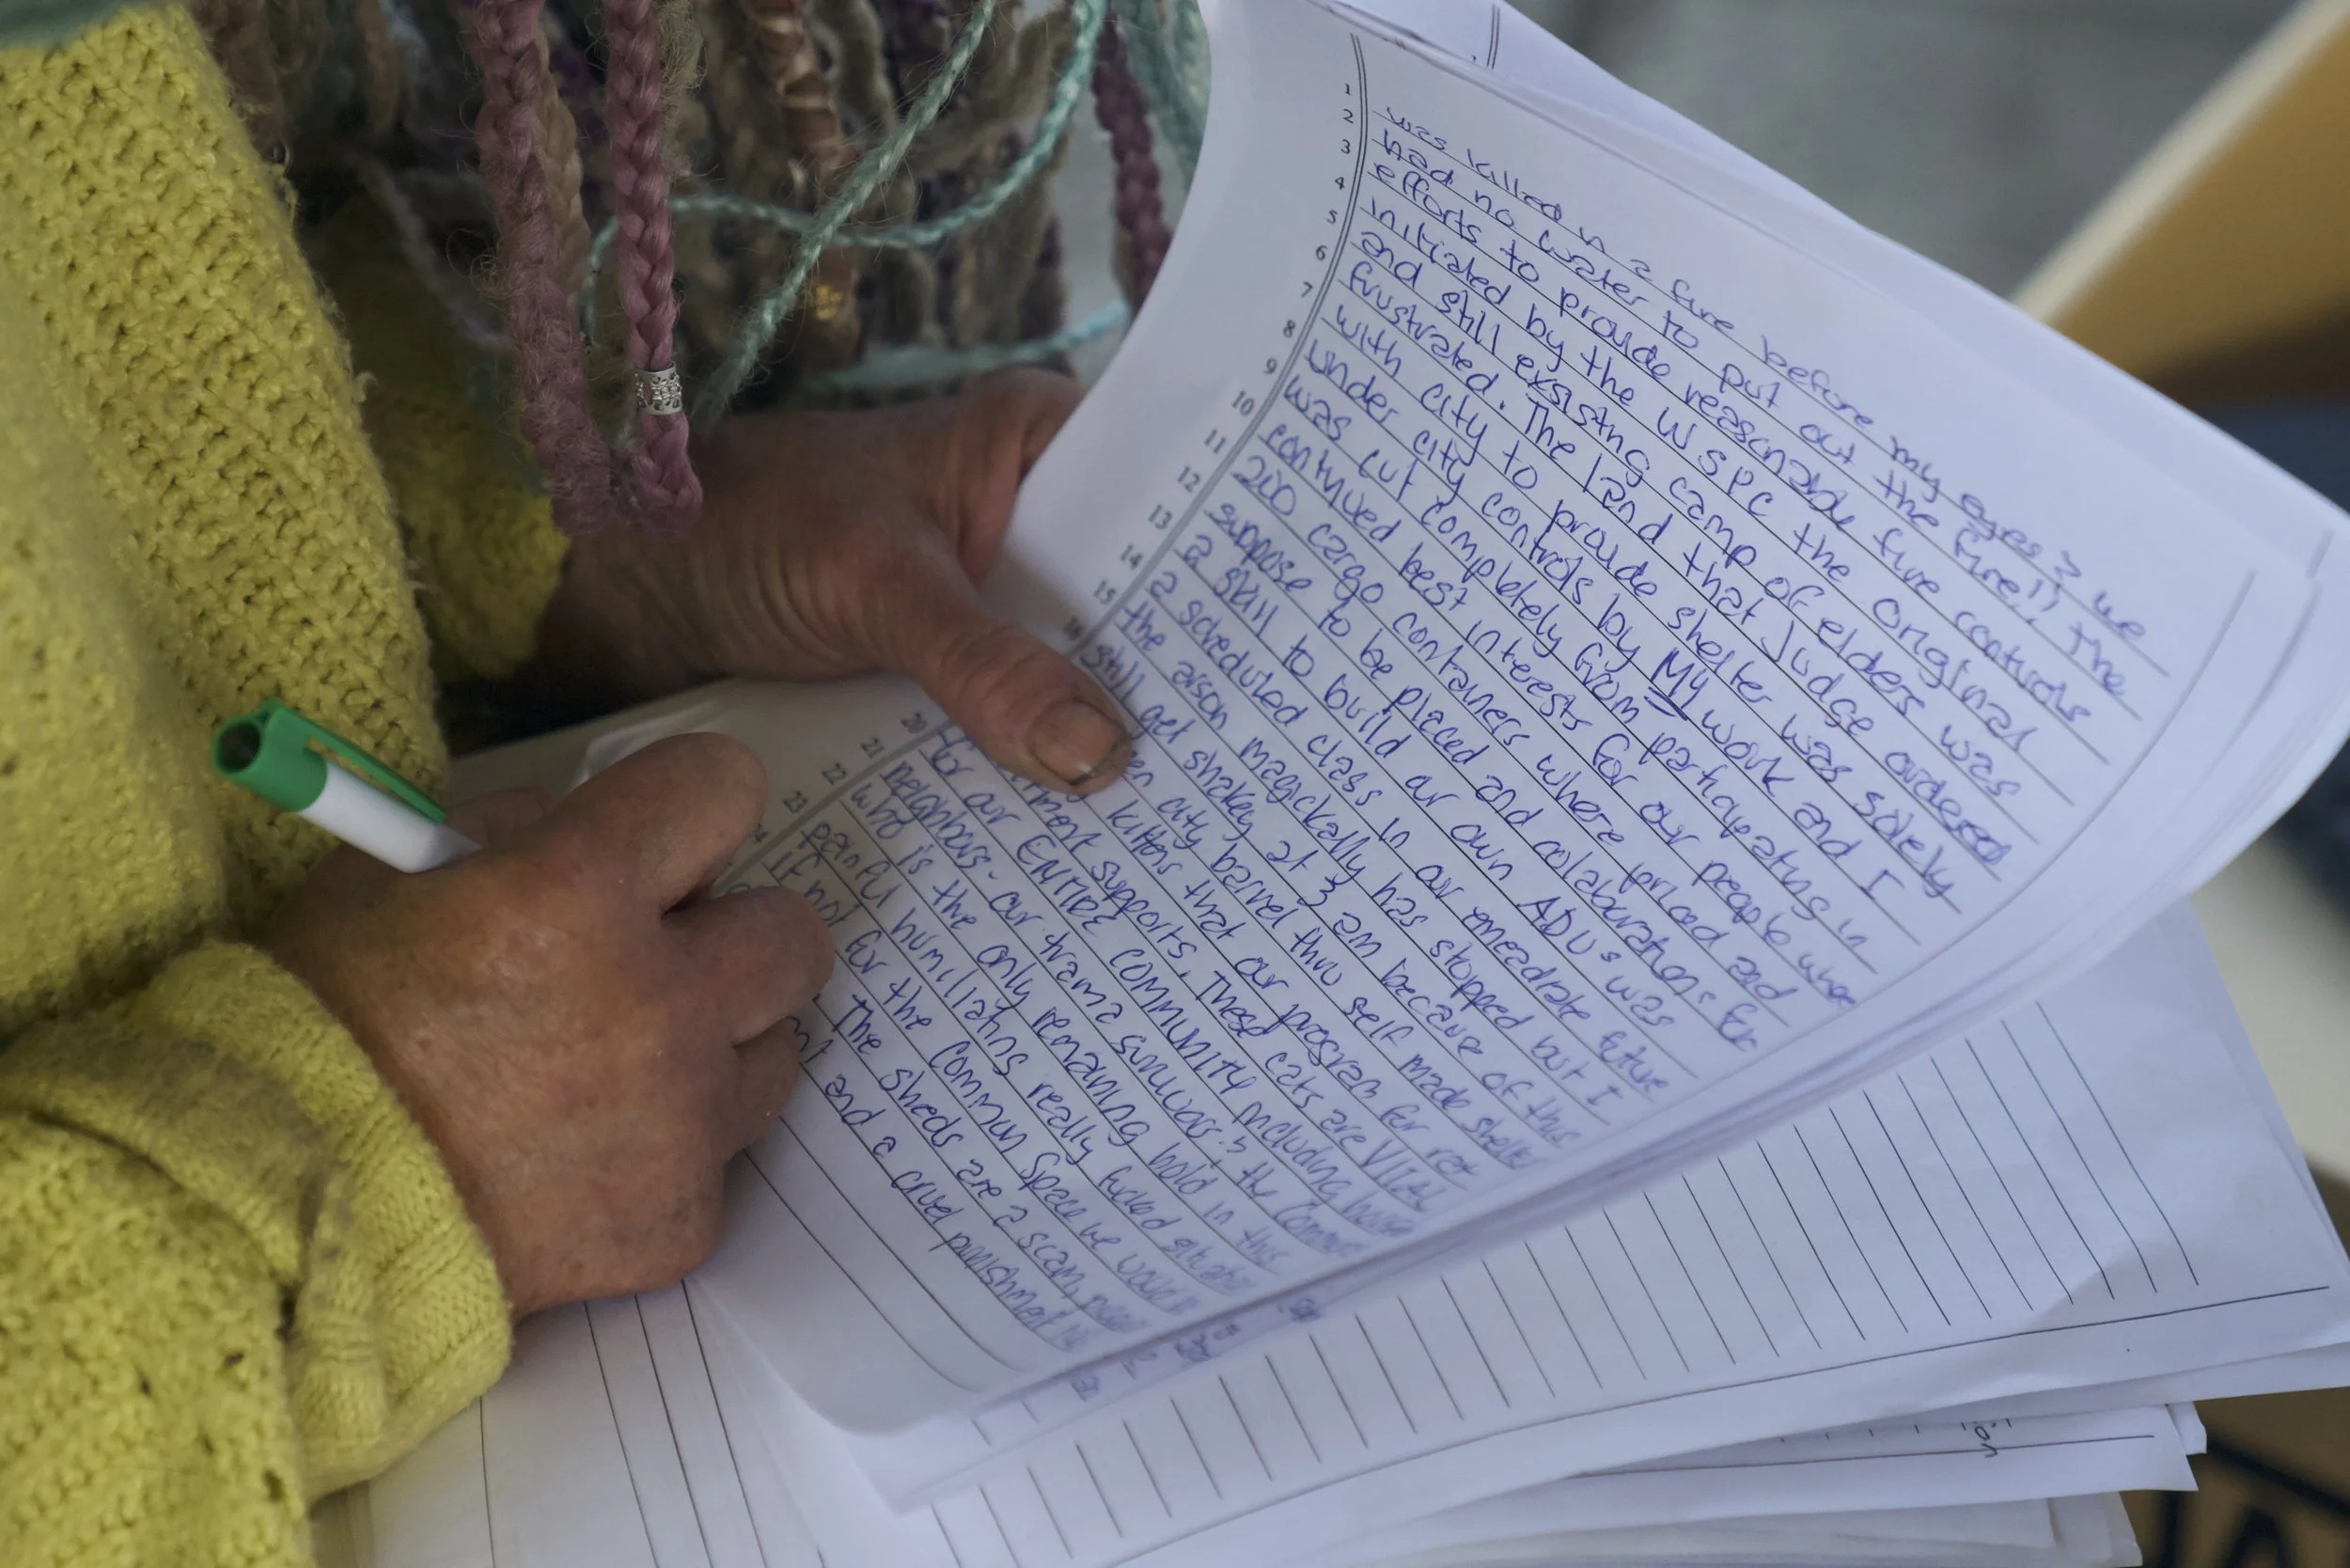 was killed in a fire before my eyes & we
had no water to put out the fire!! The
efforts to provide reasonable fire controls
initiated by the WSPC the original
and still exsisting camp of elders was
frustrated. The land that Judge ordered
with city to provide shelter was solely
under city controls by MY work and I
was cut completely from participating in
continued best interests for our people where
200 cargo containers where foriced and
suppose to be placed and colaborations for
a skill to build ar own ADUs was
a scheduled class in our emeadiate future
the arson magickally has stopped but I
still get shakey at 3 am because of this
en city barrel thru self made shelter
kittens that our program for rat
tment supports. These cats are VITAL
for our ENTIRE COMMUNITY including house
neighbors - our trama survivors is the commun
who is the only remaining hold in this
painful humiliating really fucked situation
If not for the common space we would
The sheds are a scam,
and a cruel punishment